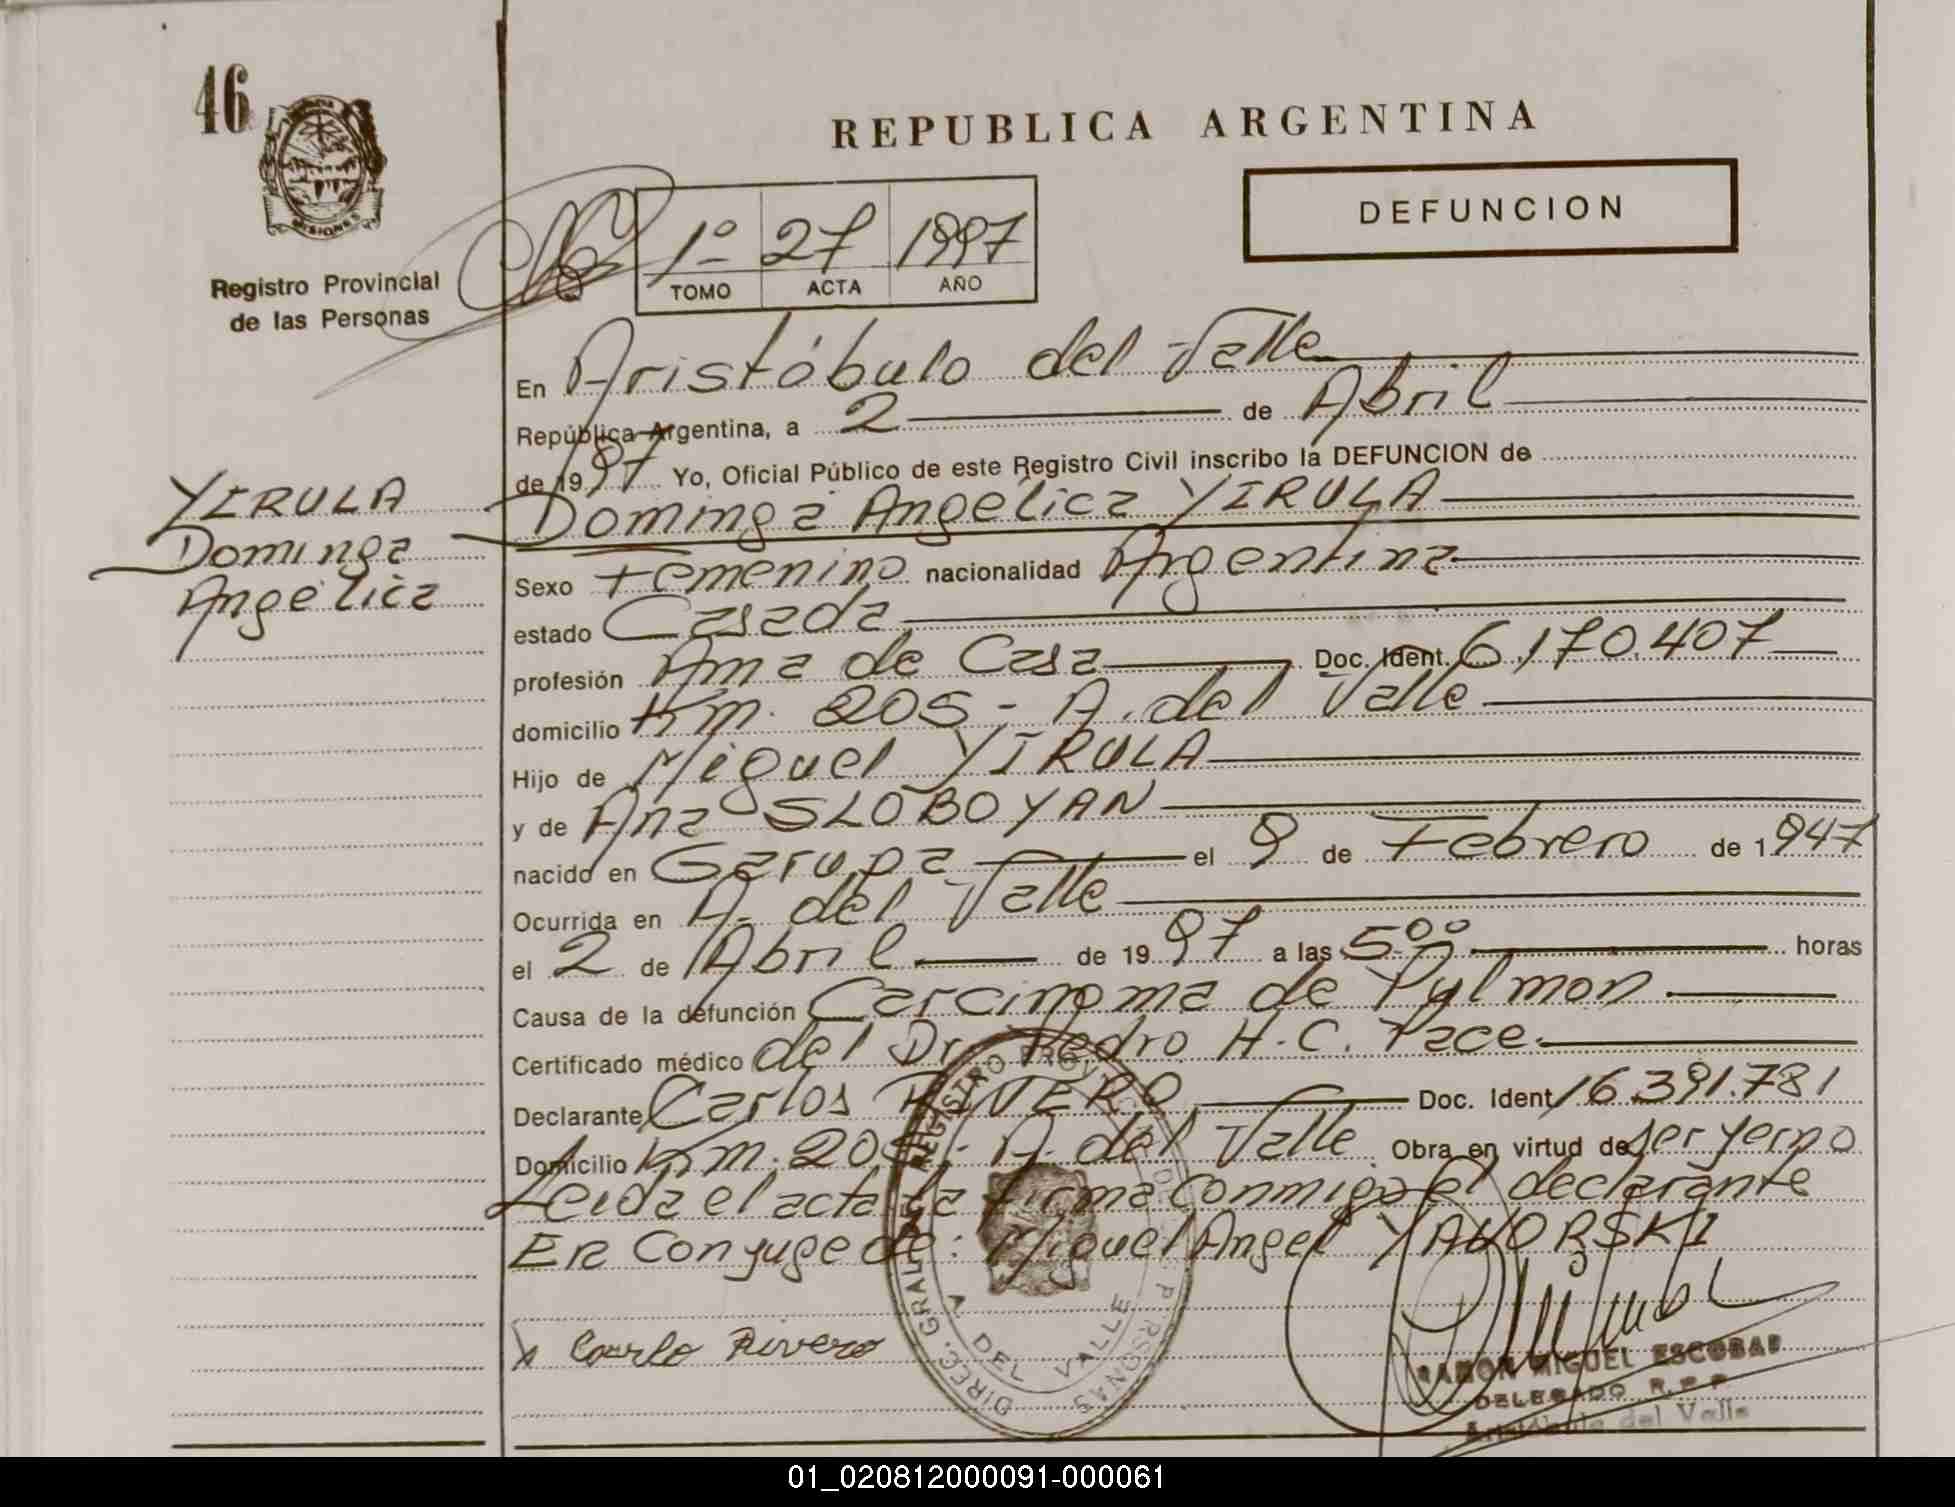 46
MISIONES
Registro Provincial
de las Personas
REPUBLICA ARGENTINA
DEFUNCION
1º 27 1997
TOMO ACTA AÑO
En Aristóbulo del Valle
República Argentina, a 2 de Abril
de 1997 Yo, Oficial Público de este Registro Civil inscribo la DEFUNCION de
YIRULA
Dominga
Angélica
Dominga Angélica YIRULA
Sexo Femenino nacionalidad Argentina
estado Casada
profesión Ama de Casa Doc. Ident. 6.170.407
domicilio Km. 205 - A. del Valle
Hijo de Miguel YIRULA
y de Ana SLOBOYAN
nacido en Garupa el 9 de Febrero de 1947
Ocurrida en A. del Valle
el 2 de Abril de 1997 a las 5ºº horas
Causa de la defunción Carcinoma de Pulmon
Certificado médico del Dr. Pedro H. C. Pace.
Declarante Carlos RIVERO Doc. Ident 16.391.781
Domicilio Km. 205 - A. del Valle Obra en virtud de ser yerno
Leida el acta la firma conmigo el declarante
Era Conyuge de: Miguel Angel YAVORSKI
x Carlo Rivero
DIREC. GRAL. DEL REGISTRO PROV. DE LAS PERSONAS
A DEL VALLE
RAMON MIGUEL ESCOBAR
DELEGADO R.P.P.
Aristóbulo del Valle
01_020812000091-000061